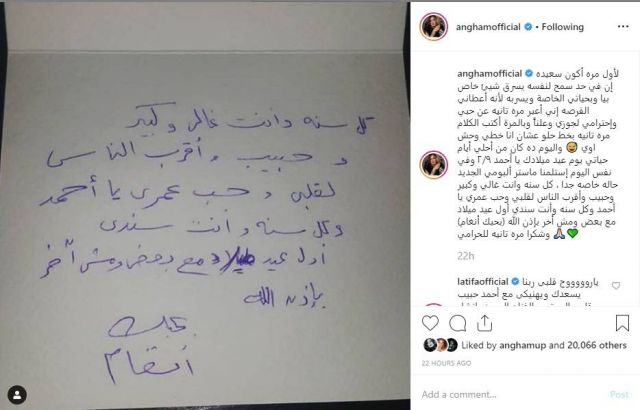 كل سنه وانت غالي وكبير
وحبيب وأقرب الناس
لقلبي وحب عمري يا أحمد
وكل سنه وأنت سندي
أول عيد ميلاد مع بعض ومش آخر
بإذن الله
بحبك
أنغام
anghamofficial • Following
anghamofficial لأول مره أكون سعيده
إن في حد سمح لنفسه يسرق شيئ خاص
بيا وبحياتي الخاصة ويسربه لأنه أعطاني
الفرصه إني أعبر مره تانيه عن حبي
وإحترامي لجوزي وعلناً وبالمرة أكتب الكلام
مره تانيه بخط حلو عشان انا خطي وحش
اوي 😅 واليوم ده كان من أحلي أيام
حياتي يوم عيد ميلادك يا أحمد ٢/٩ وفي
نفس اليوم إستلمنا ماستر ألبومي الجديد
حاله خاصه جدا ، كل سنه وانت غالي وكبير
وحبيب وأقرب الناس لقلبي وحب عمري يا
أحمد وكل سنه وأنت سندي أول عيد ميلاد
مع بعض ومش أخر بإذن الله (بحبك أنغام)
🙏💚 وشكرا مره تانيه للحرامي
22h
latifaofficial ياروووووح قلبي ربنا
يسعدك ويهنيكي مع أحمد حبيب
Liked by anghamup and 20,066 others
22 HOURS AGO
Add a comment...
Post